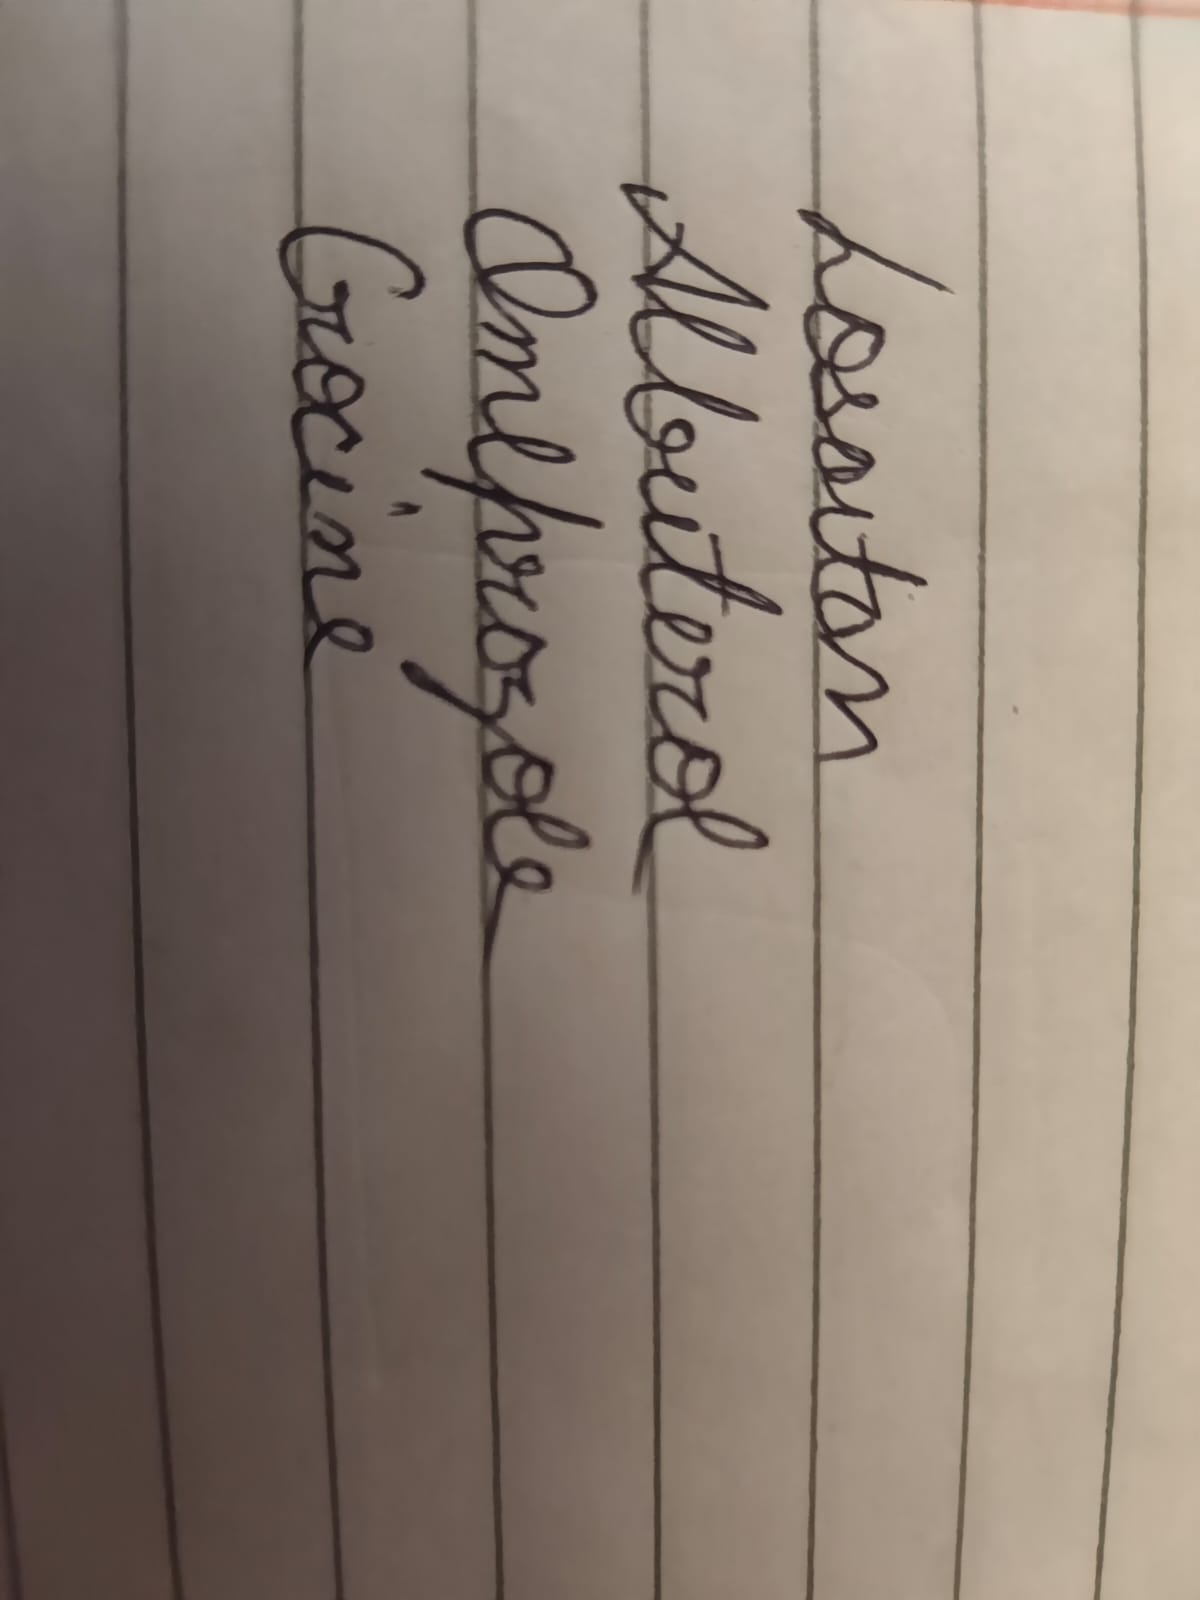 Losartan
Albuterol
Omeprozole
Crocine